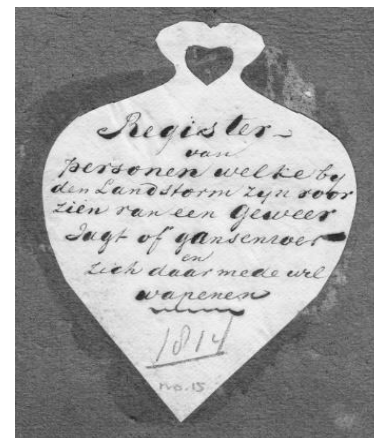 Register
van
personen welke by
den Landstorm zyn voor
zien van een Geweer
Jagt of gansenroer
en
zich daar mede wil
wapenen
1814
no. 15